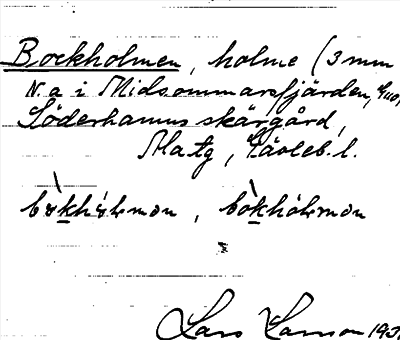 Bockholmen, holme (3 mm
N. a i Midsommarsfjärden,
Söderhamns skärgård,
Matg, Gävleb. l.
bòkhòlmən, bòkhòlmən
Lars Larsson 193